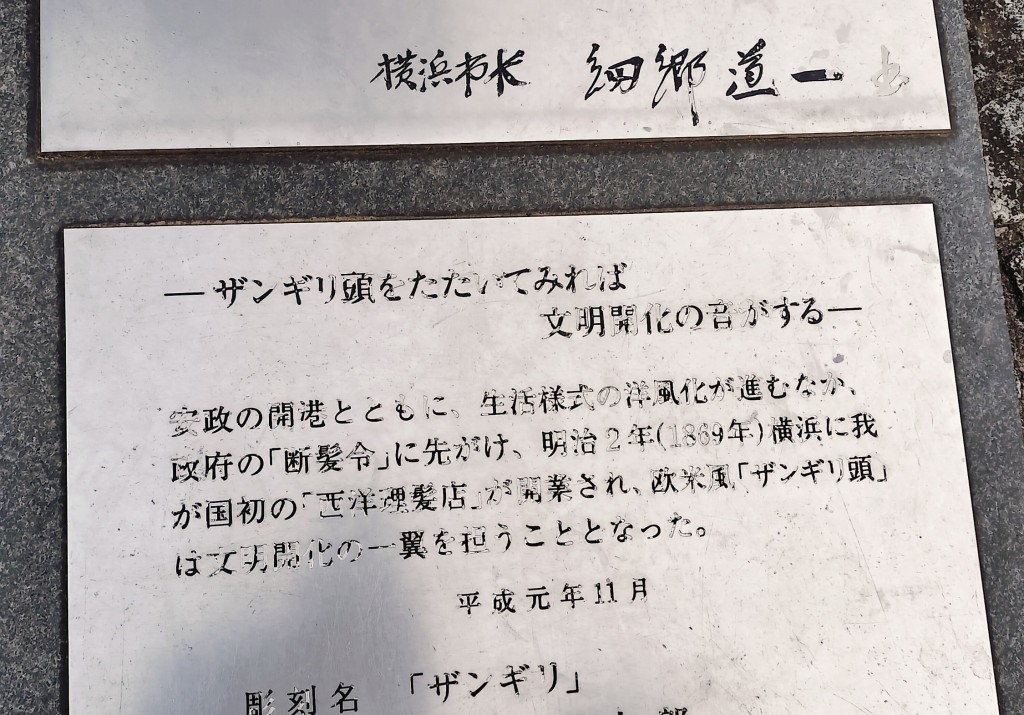 横浜市長 細郷道一 書
―ザンギリ頭をたたいてみれば
文明開化の音がする―
安政の開港とともに、生活様式の洋風化が進むなか、
政府の「断髪令」に先がけ、明治2年(1869年)横浜に我
が国初の「西洋理髪店」が開業され、欧米風「ザンギリ頭」
は文明開化の一翼を担うこととなった。
平成元年11月
彫刻名 「ザンギリ」